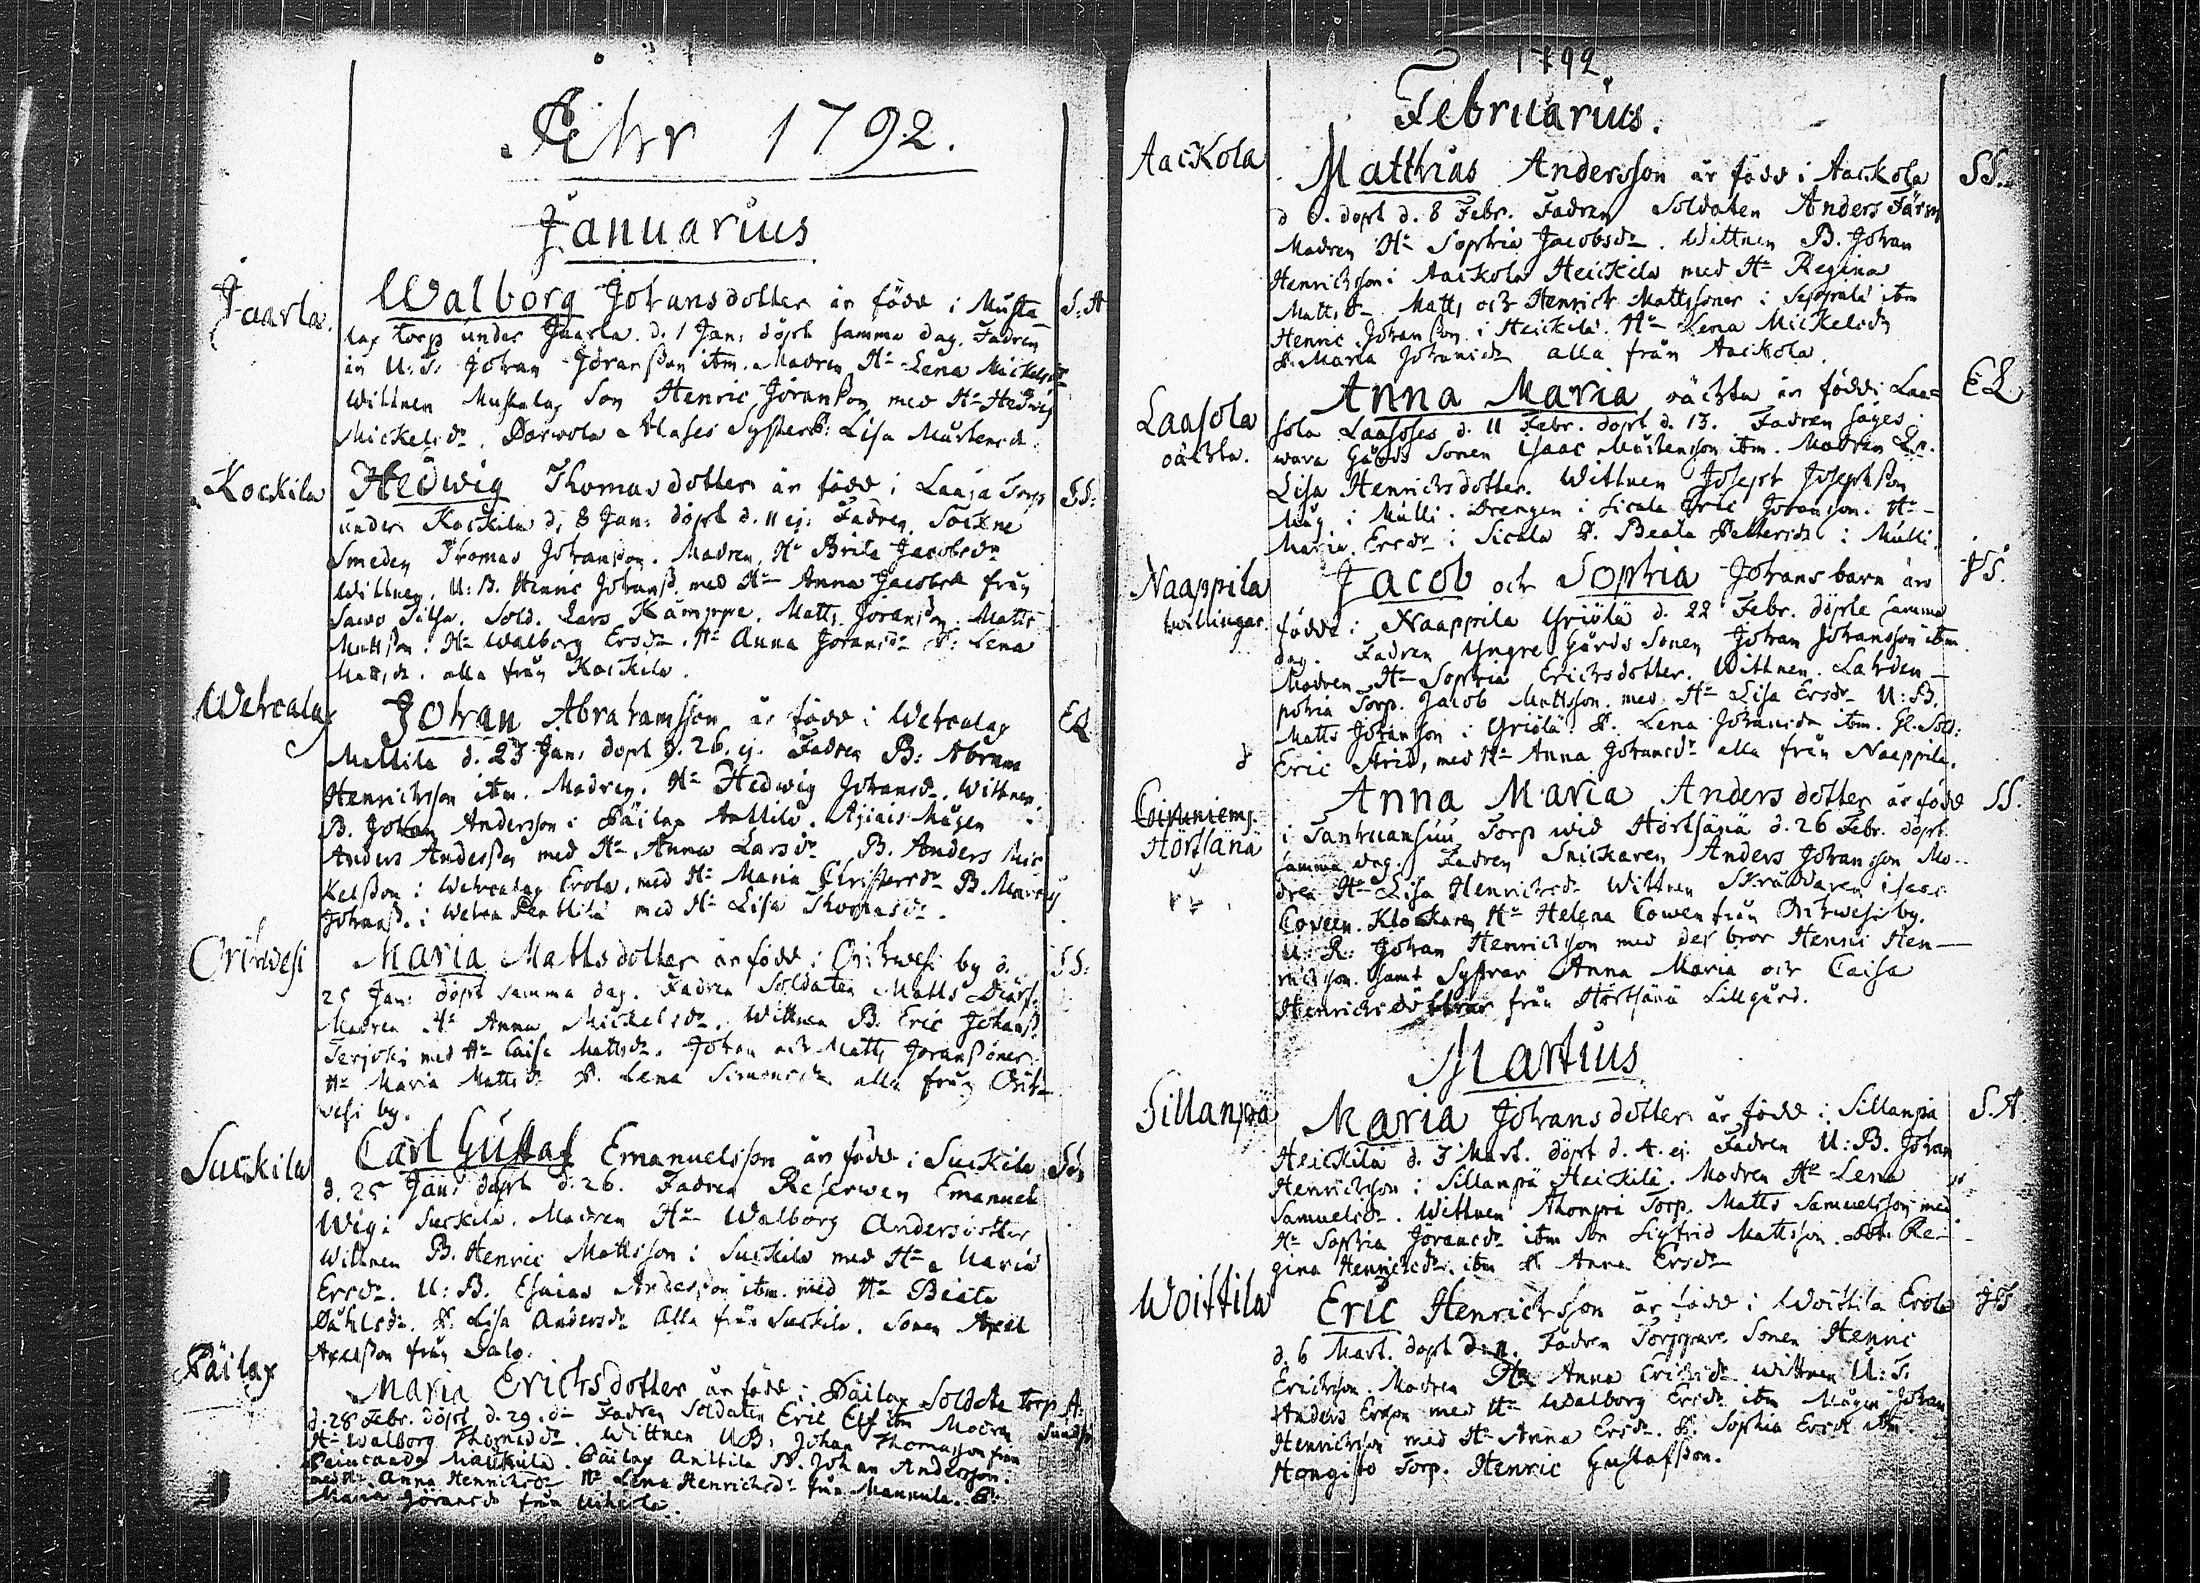 Åhr 1792.
Januarius
Jaarla. Walborg Johansdotter är född i Musta S:A
lax torp under Jaarla. d. 1 Jan: döpt samma dag. Fadren
är U:B. Johan Göransson ibm. Madren Hu Lena Mickelsdr
Wittnen Mustalax Son Henric Göranson med Hu Hedvig
Mickelsdr. Syster P: Lisa Mårtensdr.
Kockila Hedwig Thomasdotter är född i Laaja Torp SS:
under Kockila d. 8 Jan: döpt d. 11 ej. Fadren Sockne
Smeden Thomas Johanson. Madren Hu Brita Jacobsdr
Wittnen. U:B. Henric Johanss. med Hu Anna Jacobsdr från
Sold. Lars Kämppe. Matts Joransson. Matts
Mattsson. Hu Walborg Ersdr. Hu Anna Joransdr P: Lena
Mattsdr. alla från Kockila.
Wehcalax Johan Abrahamsson är född i Wehcalax EL
Mattila d. 23 Jan: döpt d. 26. ej. Fadren B: Abram
Henrichsson ibm. Madren. Hu Hedwig Johansdr. Wittnen.
B. Johan Andersson i Päilax Anttila. Mågen
Anders Andersson med Hu Anna Larsdr B. Anders Mic
kelsson i Wehcalax Erola, med Hu Maria Christersdr B.
Johanss. i Penttilä med Hu Lisa Thomasdr.
Orihwesi Maria Mattsdotter är född i Orihwesi by d. SS:
25 Jan: döpt samma dag. Fadren Soldaten Matts
Madren Hu Anna Mickelsdr. Wittnen B. Eric Johanss.
med Hu Caisa Mattsdr. Johan och Matts Joranssöner.
Hu Maria Mattsdr P. Lena Simonsdr alla från Orih-
wesi by.
Suckila Carl Gustaf Emanuelsson är född i Suckila SS
d. 25 Jan: döpt d. 26. Fadren Reserwen Emanuel
Wigi Suckila. Madren Hu Walborg Andersdotter
Wittnen B. Henric Mattsson i Suckila med Hu Maria
Ersdr. U:B. Esaias Andersson ibm. med Hu Beata
Dahlsdr. P. Lisa Andersdr Alla från Suckila. Sonen Axel
Axelsson från Salo.
Päilax Maria Erichsdotter är född i Päilax Soldate torp A:
d. 28 Febr. döpt d. 29. dr Fadren Soldaten Eric Elf ibm Modren
Hu Walborg Thomasdr. Wittnen UB: Johan Thomasson från
Maukula. Päilax Anttila P. Johan Andersson.
med Hu Anna Henrichsdr Hu Lena Henrichsdr från Mannula. P:
Maria Göransdr från
1792.
Februarius.
Aackola Matthias Andersson är född i Aackola SS.
d 6. döpt d. 8 Febr. Fadren Soldaten Anders Färm
Madren Hu Sophia Jacobsdr. Wittnen B. Johan
Henrichsson i Aackola Heickila med Hu Regina
Mattsdr Matts och Henrich Mattssöner i Seppälä ibm
Henric Johansson i Heickilä. Hu Lena Mickelsdr
P. Maria Johansdr alla från Aackola.
Laasola oächta. Anna Maria oächta är född i Laa= EL
sola Laasoses d. 11 Febr. döpt d. 13. Fadren säges
wara Gårds Sonen Isaac Mårtensson ibm. Madren
Lisa Henrichsdotter. Wittnen Joseph Josephsson
Måg i Mulli. Drengen i Sicala Eric Johanson. Hu
Maria Ersdr i Sicala P. Beata Pettersdr i Mulli.
Naappila twillingar Jacob och Sophia Johans barn äro JS.
födde i Naappila Yriölä d. 22 Febr. döpte samma
dag. Fadren Yngre Gårds Sonen Johan Johansson ibm.
Modren Hu Sophia Erichsdotter. Wittnen. Lahden-
pohia Torp. Jacob Mattsson. med Hu Lisa Ersdr U:B.
Matts Johansson i Yriölä. P. Lena Johansdr ibm. Gl. Sold:
Eric Strid, med Hu Anna Johansdr alla från Naappila.
Hörtsänä Anna Maria Andersdotter är född SS.
i Torp wid Hörtsänä d. 26 Febr. döpt
samma dag. Fadren Snickaren Anders Johansson Mo-
dren Hu Lisa Henrichsdr Wittnen Skräddaren Isaac
Coveen. Klockaren Hu Helena Cowen från Orihwesi by.
U:B: Johan Henrichson med des bror Henric Hen-
richson. samt Systrar Anna Maria och Caisa
Henrichsdöttrar från Hörtsänä Lillgård.
Martius
Sillanpä Maria Johansdotter är född i Sillanpä S.A
Heickilä d. 3 Mart. döpt d. 4. ej. Fadren U:B. Johan
Henrichson i Sillanpä Heickilä. Modren Hu Lena
Samuelsdr. Wittnen Ahonpä Torp. Matts Samuelsson med
Hu Sophia Joransdr ibm son Sigfrid Mattsson. Dot. Re-
gina Henrichsdr. ibm P. Anna Ersdr
Woittila Eric Henrichsson är född i Woittila Erola JS
d. 6 Mart. döpt d. 11. Fadren Torppare Sonen Henric
Erichson. Modren Hu Anna Erichsdr Wittnen U:B.
Anders Ersson med Hu Walborg Ersdr ibm Mågen Johan
Henrichsson med Hu Anna Ersdr. P. Sophia Ersdr ibm.
Hongisto Torp. Henric Gustafsson.